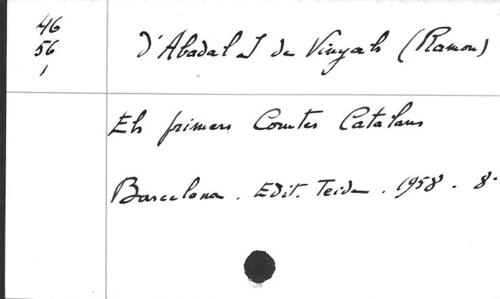 46
56
1
d'Abadal I de Vinyals (Ramon)
Els primers Comtes Catalans
Barcelona . Edit. Teide . 1958 . 8º